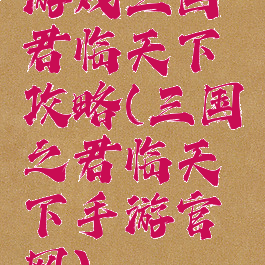 游戏三国
君临天下
攻略(三国
之君临天
下手游官
网)